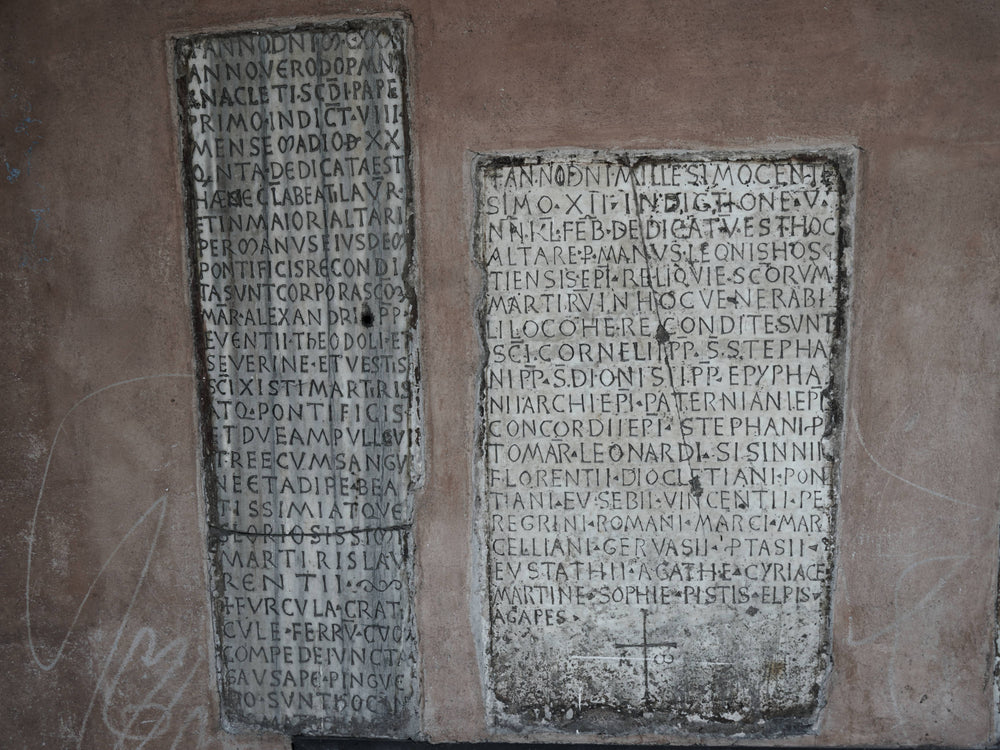 +ANNO DNI M CXXX
ANNO VERO DOP MN
ANACLETI · SCDI · PAPE
PRIMO · INDICT · VIII ·
MENSE MADIO D · XX
QINTA · DEDICATA EST
HÆC ECLA BEATI LAVR ·
ET IN MAIORI ALTARI
PER MANVS EIVSDEM
PONTIFICIS RECONDI
TA SVNT CORPORA SCOR
MAR · ALEXANDRI · PP ·
EVENTII · THEODOLI · ET
SEVERINE · ET VESTIS
SCI XISTI MARTIRIS
ATQ · PONTIFICIS ·
ET DVE AMPVLLE VI
TREE CVM SANGV
NE ET ADIPE · BEA
TISSIMI ATQVE
GLORIOSISSIMI
MARTIRIS LAV
RENTII ·
+ FVRCVLA · CRAT
CVLE · FERRV · CVO
COMPEDE IVNCTA
GAVSAPE · PINGVE
RO · SVNT HOC IN
+ANNO DNI MILLESIMO CENTE
SIMO · XII · INDICTIONE · V ·
NN · KL · FEB · DEDICATV EST HOC
ALTARE · P · MANVS · LEONIS HOS
TIENSIS EPI · RELIQVIE · SCORVM
MARTIRV IN HOC VENERABI
LI LOCO HE RECONDITE SVNT
SCI · CORNELII PP · S · STEPHA
NI PP · S · DIONISII · PP · EPYPHA
NII ARCHIEPI · PATERNIANI · EPI
CONCORDII EPI · STEPHANI · P
TOMAR · LEONARDI · SISINNII
FLORENTII · DIOCLETIANI · PON
TIANI · EVSEBII · VINCENTII · PE
REGRINI · ROMANI · MARCI · MAR
CELLIANI · GERVASII · PTASII ·
EVSTATHII · AGATHE · CYRIACE
MARTINE · SOPHIE · PISTIS · ELPIS ·
AGAPES ·